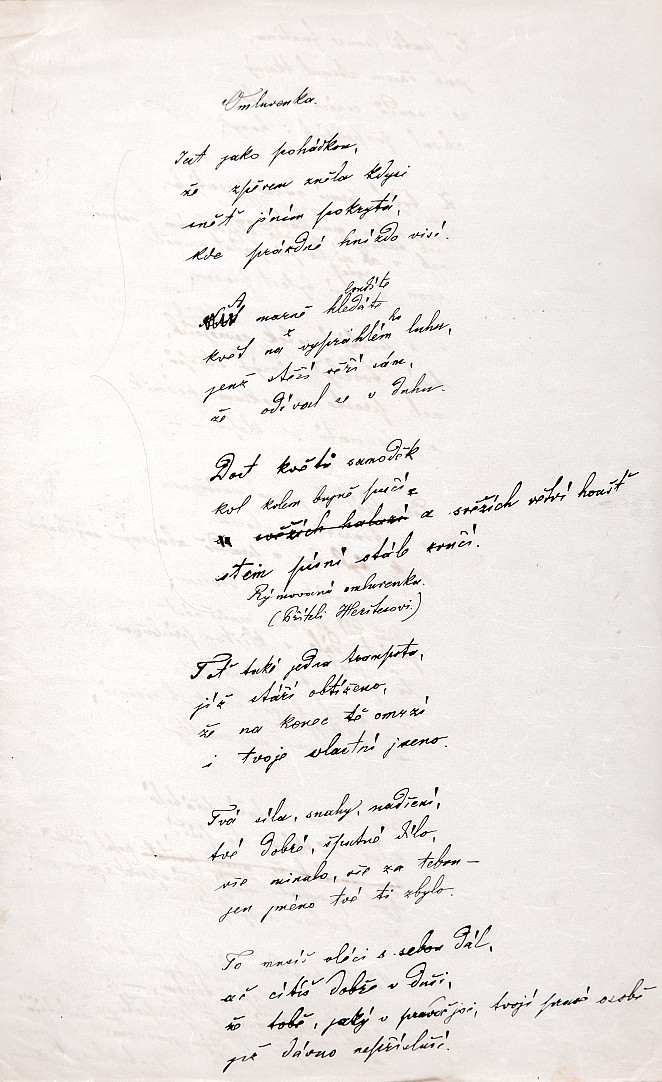 Omluvenka.
Jest jako pohádkou,
že zpěvem zněla kdysi
sněť jíním pokrytá,
kde prázdné hnízdo visí.
A marně hledáte
loudíte
květ na vyprahlém luhu,
jenž stěží věří sám,
že odíval se v duhu.
Dost květů samoděk
kol kolem bujně pučí
svěžích haluzí a svěžích větví houšť
stem písní stále zvučí.
Rýmovaná omluvenka.
(Příteli Heritesovi.)
Toť také jedna trampota,
jíž stáří obtíženo,
že na konec tě omrzí
i tvoje vlastní jmeno.
Tvá síla, snahy, nadšení,
tvé dobré, špatné dílo,
vše minulo, vše za tebou –
jen jméno tvé ti zbylo.
To musíš vléci s sebou dál,
ač cítíš dobře v duši,
že tobě, jaký v tvojí prusé osobě
již dávno nepřísluší.